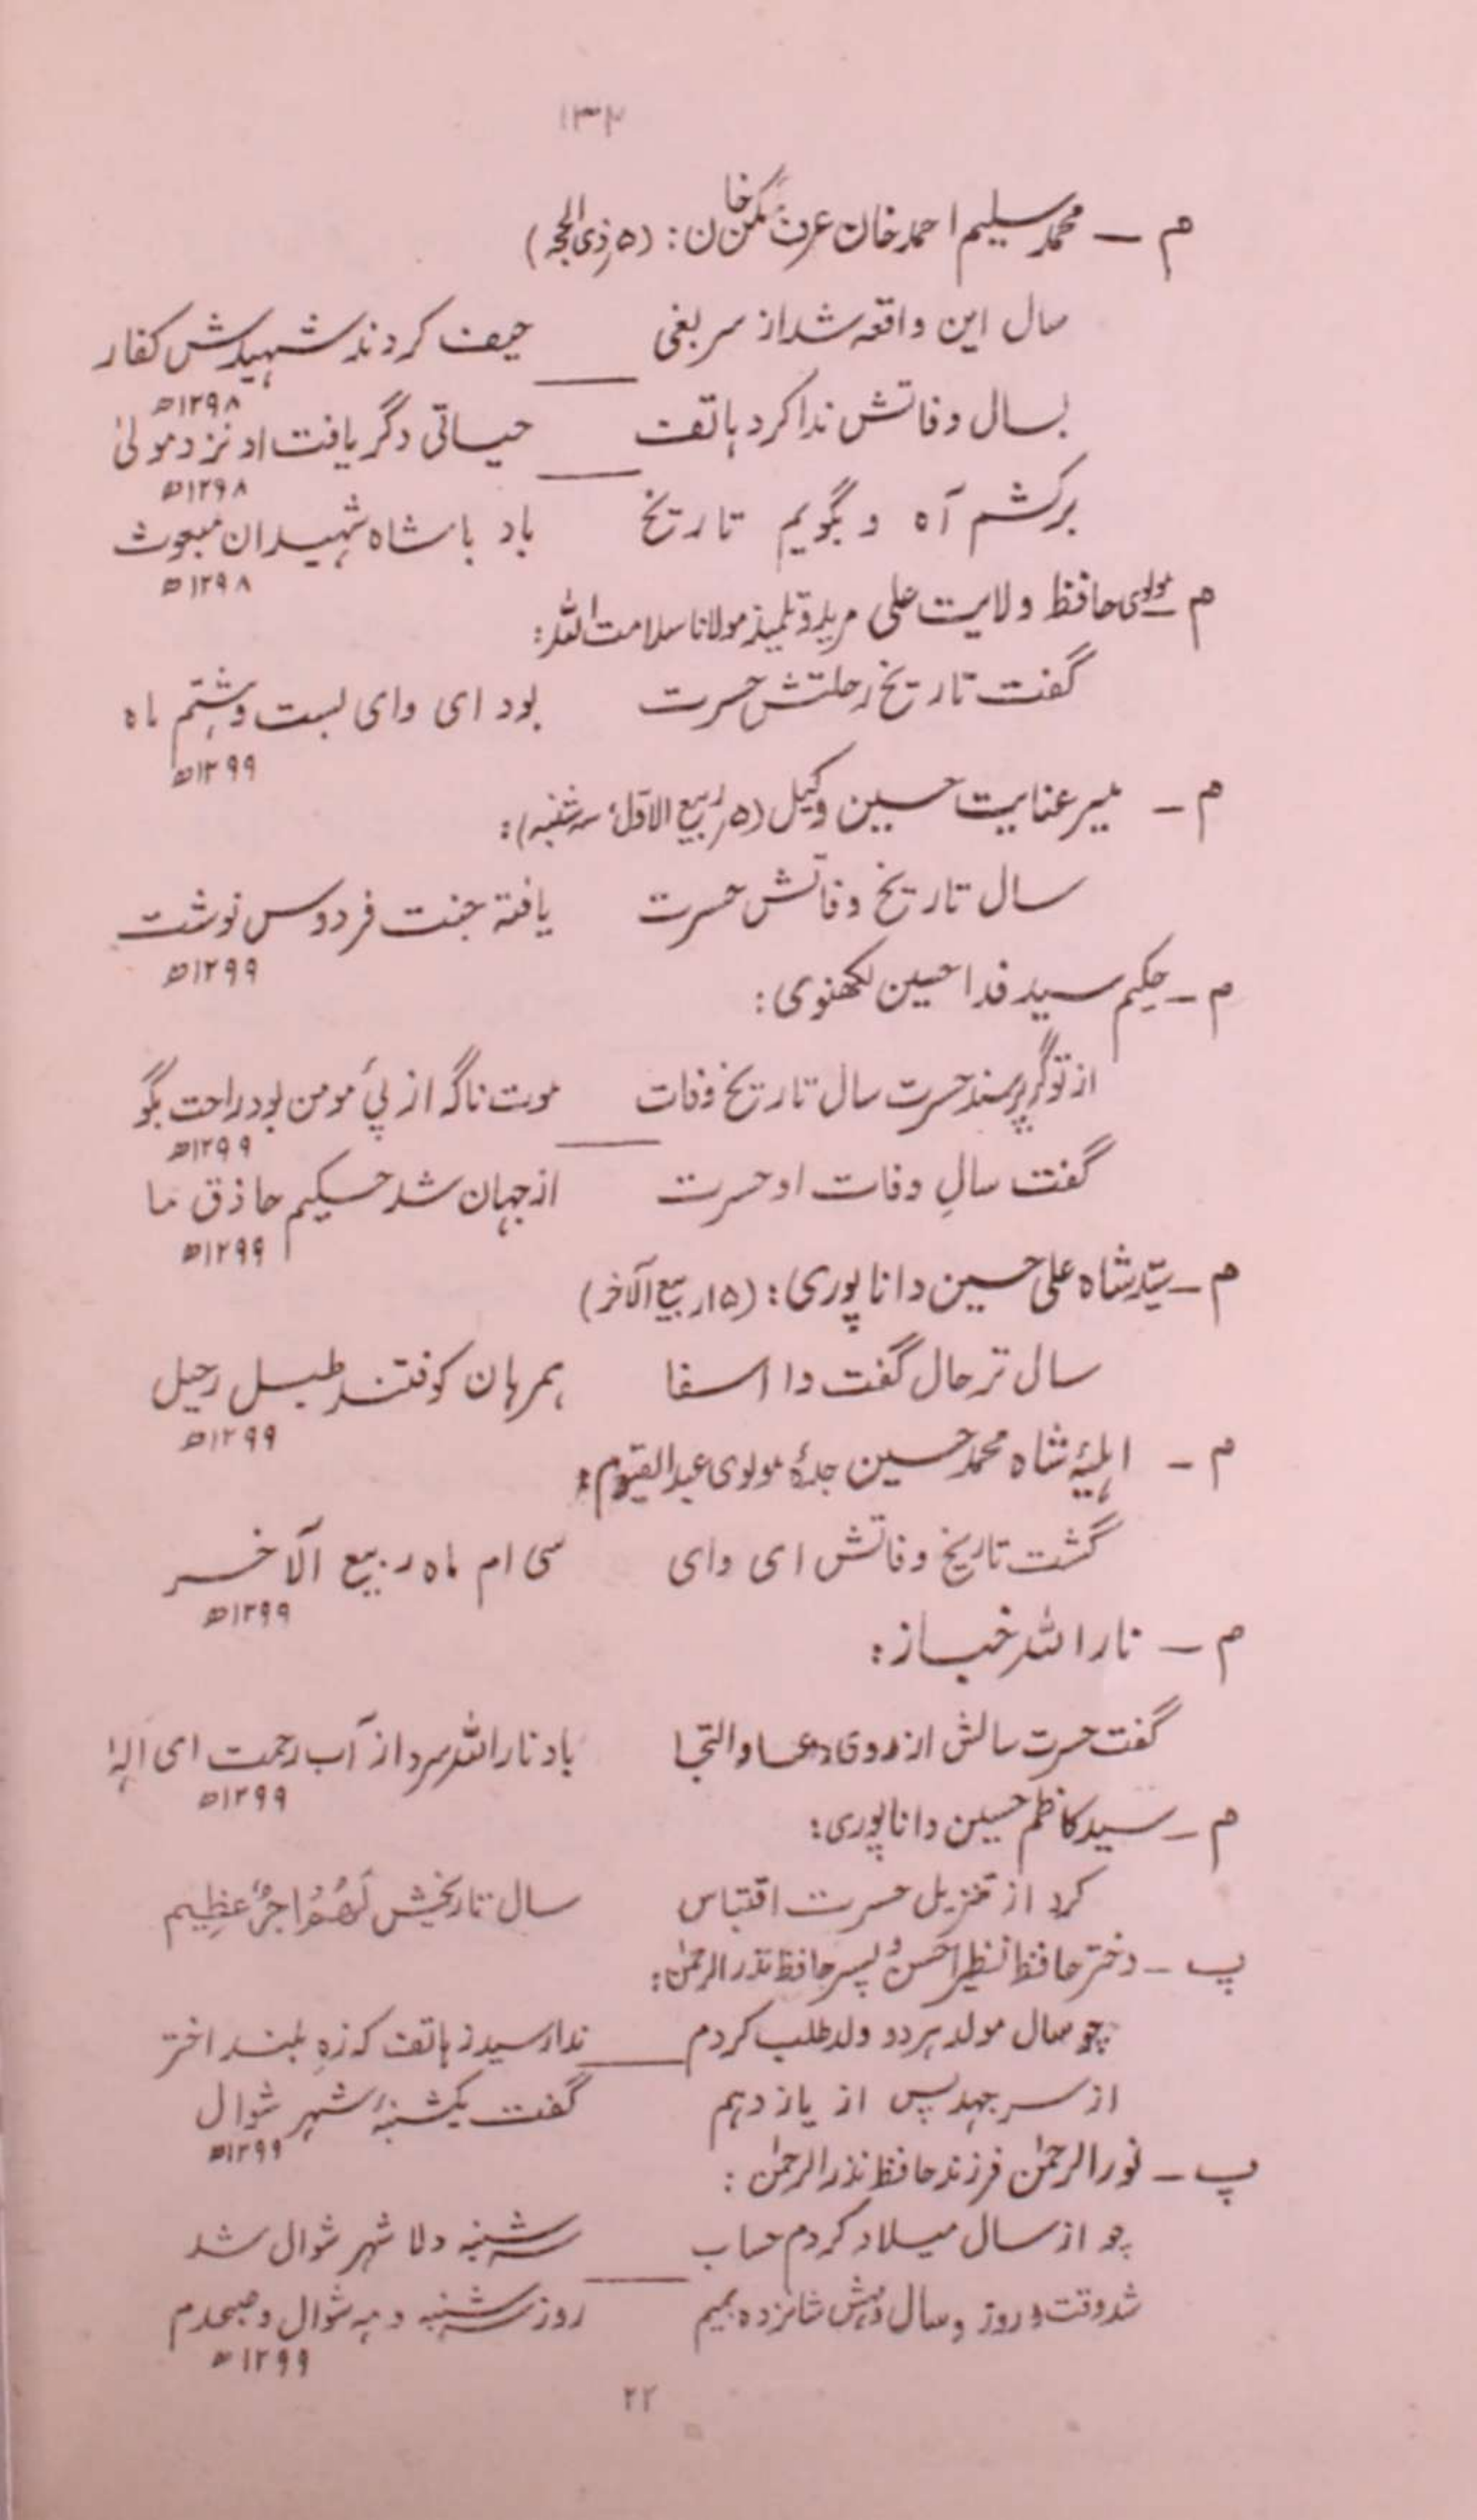 ۱۳۲
م ــ محمد سلیم احمد خان عرف مگن خان : (۵ ذی الحجہ)
سال این واقعہ شد از سر بغی حیف کردند شہیدش کفار
۱۲۹۸ھ
بسال وفاتش ندا کرد ہاتف حیاتی دگر یافت او نزد مولیٰ
۱۲۹۸ھ
برکشم آہ و بگویم تاریخ باد باشاہ شہیدان مبعوث
۱۲۹۸ھ
م ــ مولوی حافظ ولایت علی مرید و تلمیذ مولانا سلامت اللہ :
گفت تاریخ رحلتش حسرت بود ای وای بست و ہشتم ماہ
۱۲۹۹ھ
م ــ میر عنایت حسین وکیل (۵ ربیع الاوّل سہ شنبہ) :
سال تاریخ وفاتش حسرت یافتہ جنت فردوس نوشت
۱۲۹۹ھ
م ــ حکیم سید فدا حسین لکھنوی :
از تو گر پرسند حسرت سال تاریخ وفات موت ناگہ از پئ مومن بود راحت بگو
۱۲۹۹ھ
گفت سالِ وفات او حسرت از جہان شد حکیم حاذق ما
۱۲۹۹ھ
م ــ سیّد شاہ علی حسین داناپوری : (۱۵ ربیع الآخر)
سال ترحال گفت وا اسفا ہمرہان کوفتند طبل رحیل
۱۲۹۹ھ
م ــ اہلیۂ شاہ محمد حسین جدۂ مولوی عبد القیّوم :
گشت تاریخ وفاتش ای وای سی ام ماہ ربیع الآخر
۱۲۹۹ھ
م ــ نار اللہ خباز :
گفت حسرت سالش از روی دعا و التجا باد نار اللہ سرد از آب رحمت ای الٰہ
۱۲۹۹ھ
م ــ سید کاظم حسین داناپوری :
کرد از تنزیل حسرت اقتباس سال تاریخش لَھُمْ اَجْرٌ عَظِیم
پ ــ دختر حافظ نظیر احسن و پسر حافظ نذر الرحمٰن :
چو سال مولد ہر دو ولد طلب کردم ندا رسید ز ہاتف کہ زہ بلند اختر
از سر جہد پس از یازدہم گفت یکشنبۂ شہر شوال
۱۲۹۹ھ
پ ــ نور الرحمٰن فرزند حافظ نذر الرحمٰن :
چو از سال میلاد کردم حساب سہ شنبہ دلا شہر شوال شد
شد وقت و روز و سال و مہش شانزدہ بہم روز سہ شنبہ و مہ شوال و صبحدم
۱۲۹۹ھ
۲۲